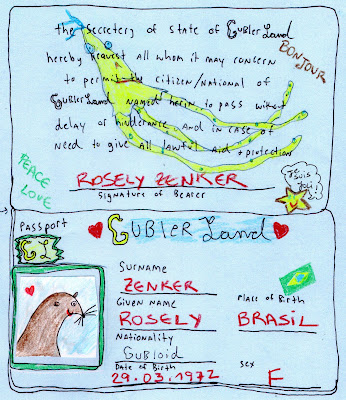 The Secretery of State of GUBLer Land
hereby request all whom it may concern
to permit the citizen/national of
GUBLer Land named herin, to pass wihout
delay or hinderance. And in case of
need to give all lawful aid + protection
BONJOUR
PEACE
LOVE
ROSELY ZENKER
Signature of Bearer
Je suis
joli!
Passport
GL
GUBLer Land
Surname
ZENKER
Given Name
ROSELY
Place of Birth
BRASIL
Nationality
Gubloid
Date of Birth
29.03.1972
Sex
F